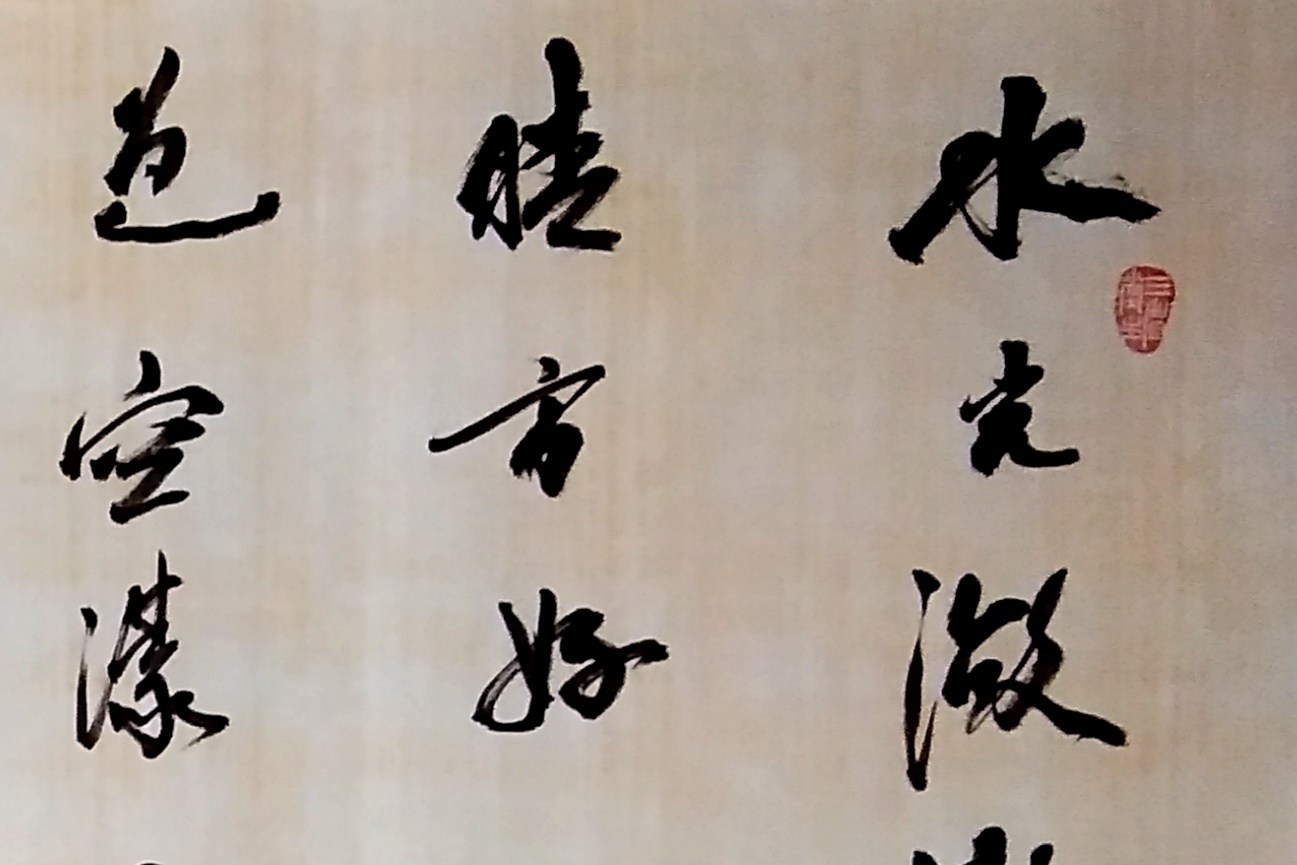 水光瀲
晴方好
色空濛